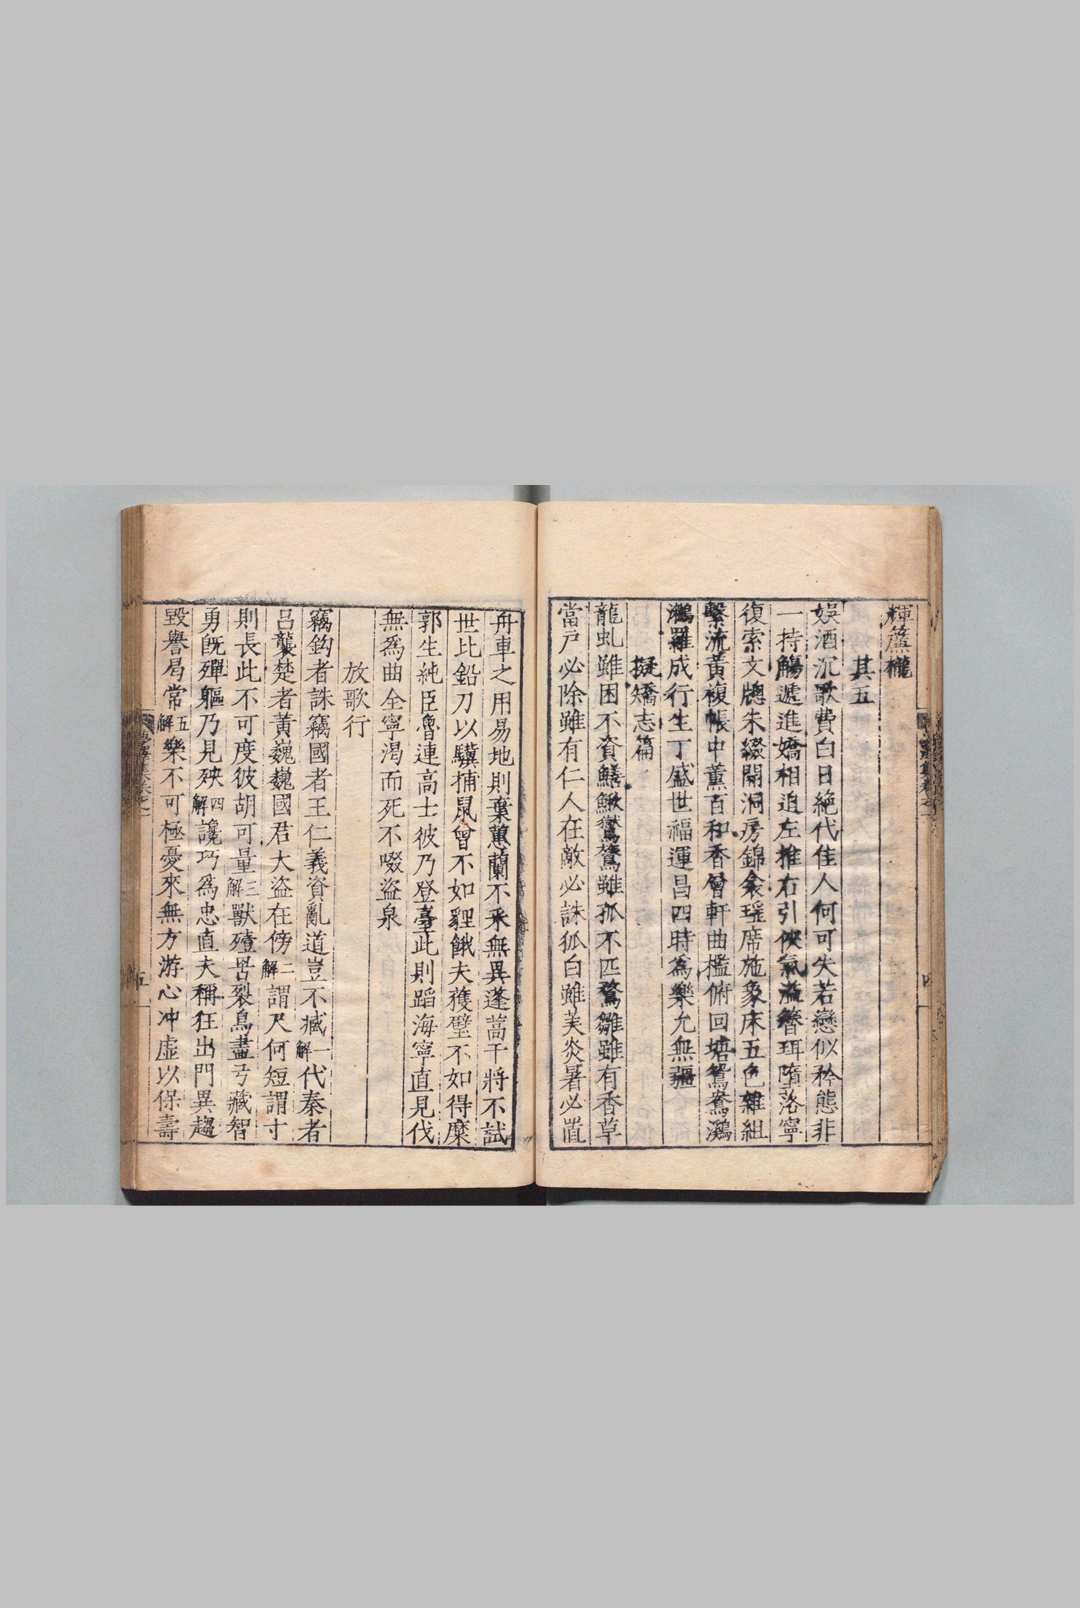 輝簾櫳
其五
娯酒沉歌費白日絶代佳人何可失若戀似矜態非
一持觴遞進嬌相追左推右引俠氣溢簪珥墮落寧
復索文牕朱綴開洞房錦衾瑶席施象床五色雜組
繫流黃複帳中薰百和香曾軒曲檻俯回塘鴛鴦鸂
鶒羅成行生丁盛世福運昌四時為樂允無疆
擬矯志篇
龍虬雖困不資鱔鰍鸞鷟雖孤不匹鶩雛雖有香草
當戸必除雖有仁人在敵必誅狐白雖美炎暑必置
舟車之用易地則棄蕙蘭不采無異蓬蒿干將不試
世比鉛刀以驥捕鼠曾不如貍餓夫獲璧不如得糜
郭生純臣魯連高士彼乃登臺此則蹈海寧直見伐
無為曲全寧渴而死不啜盜泉
放歌行
竊鈎者誅竊國者王仁義資亂道豈不臧一解代秦者
呂襲楚者黃巍巍國君大盜在傍二解謂尺何短謂寸
則長此不可度彼胡可量三解獸殪弩裂鳥盡弓藏智
勇旣殫軀乃見殃四解讒巧為忠直夫稱狂出門異趨
毀譽局常五解樂不可極憂來無方游心冲虛以保壽
五